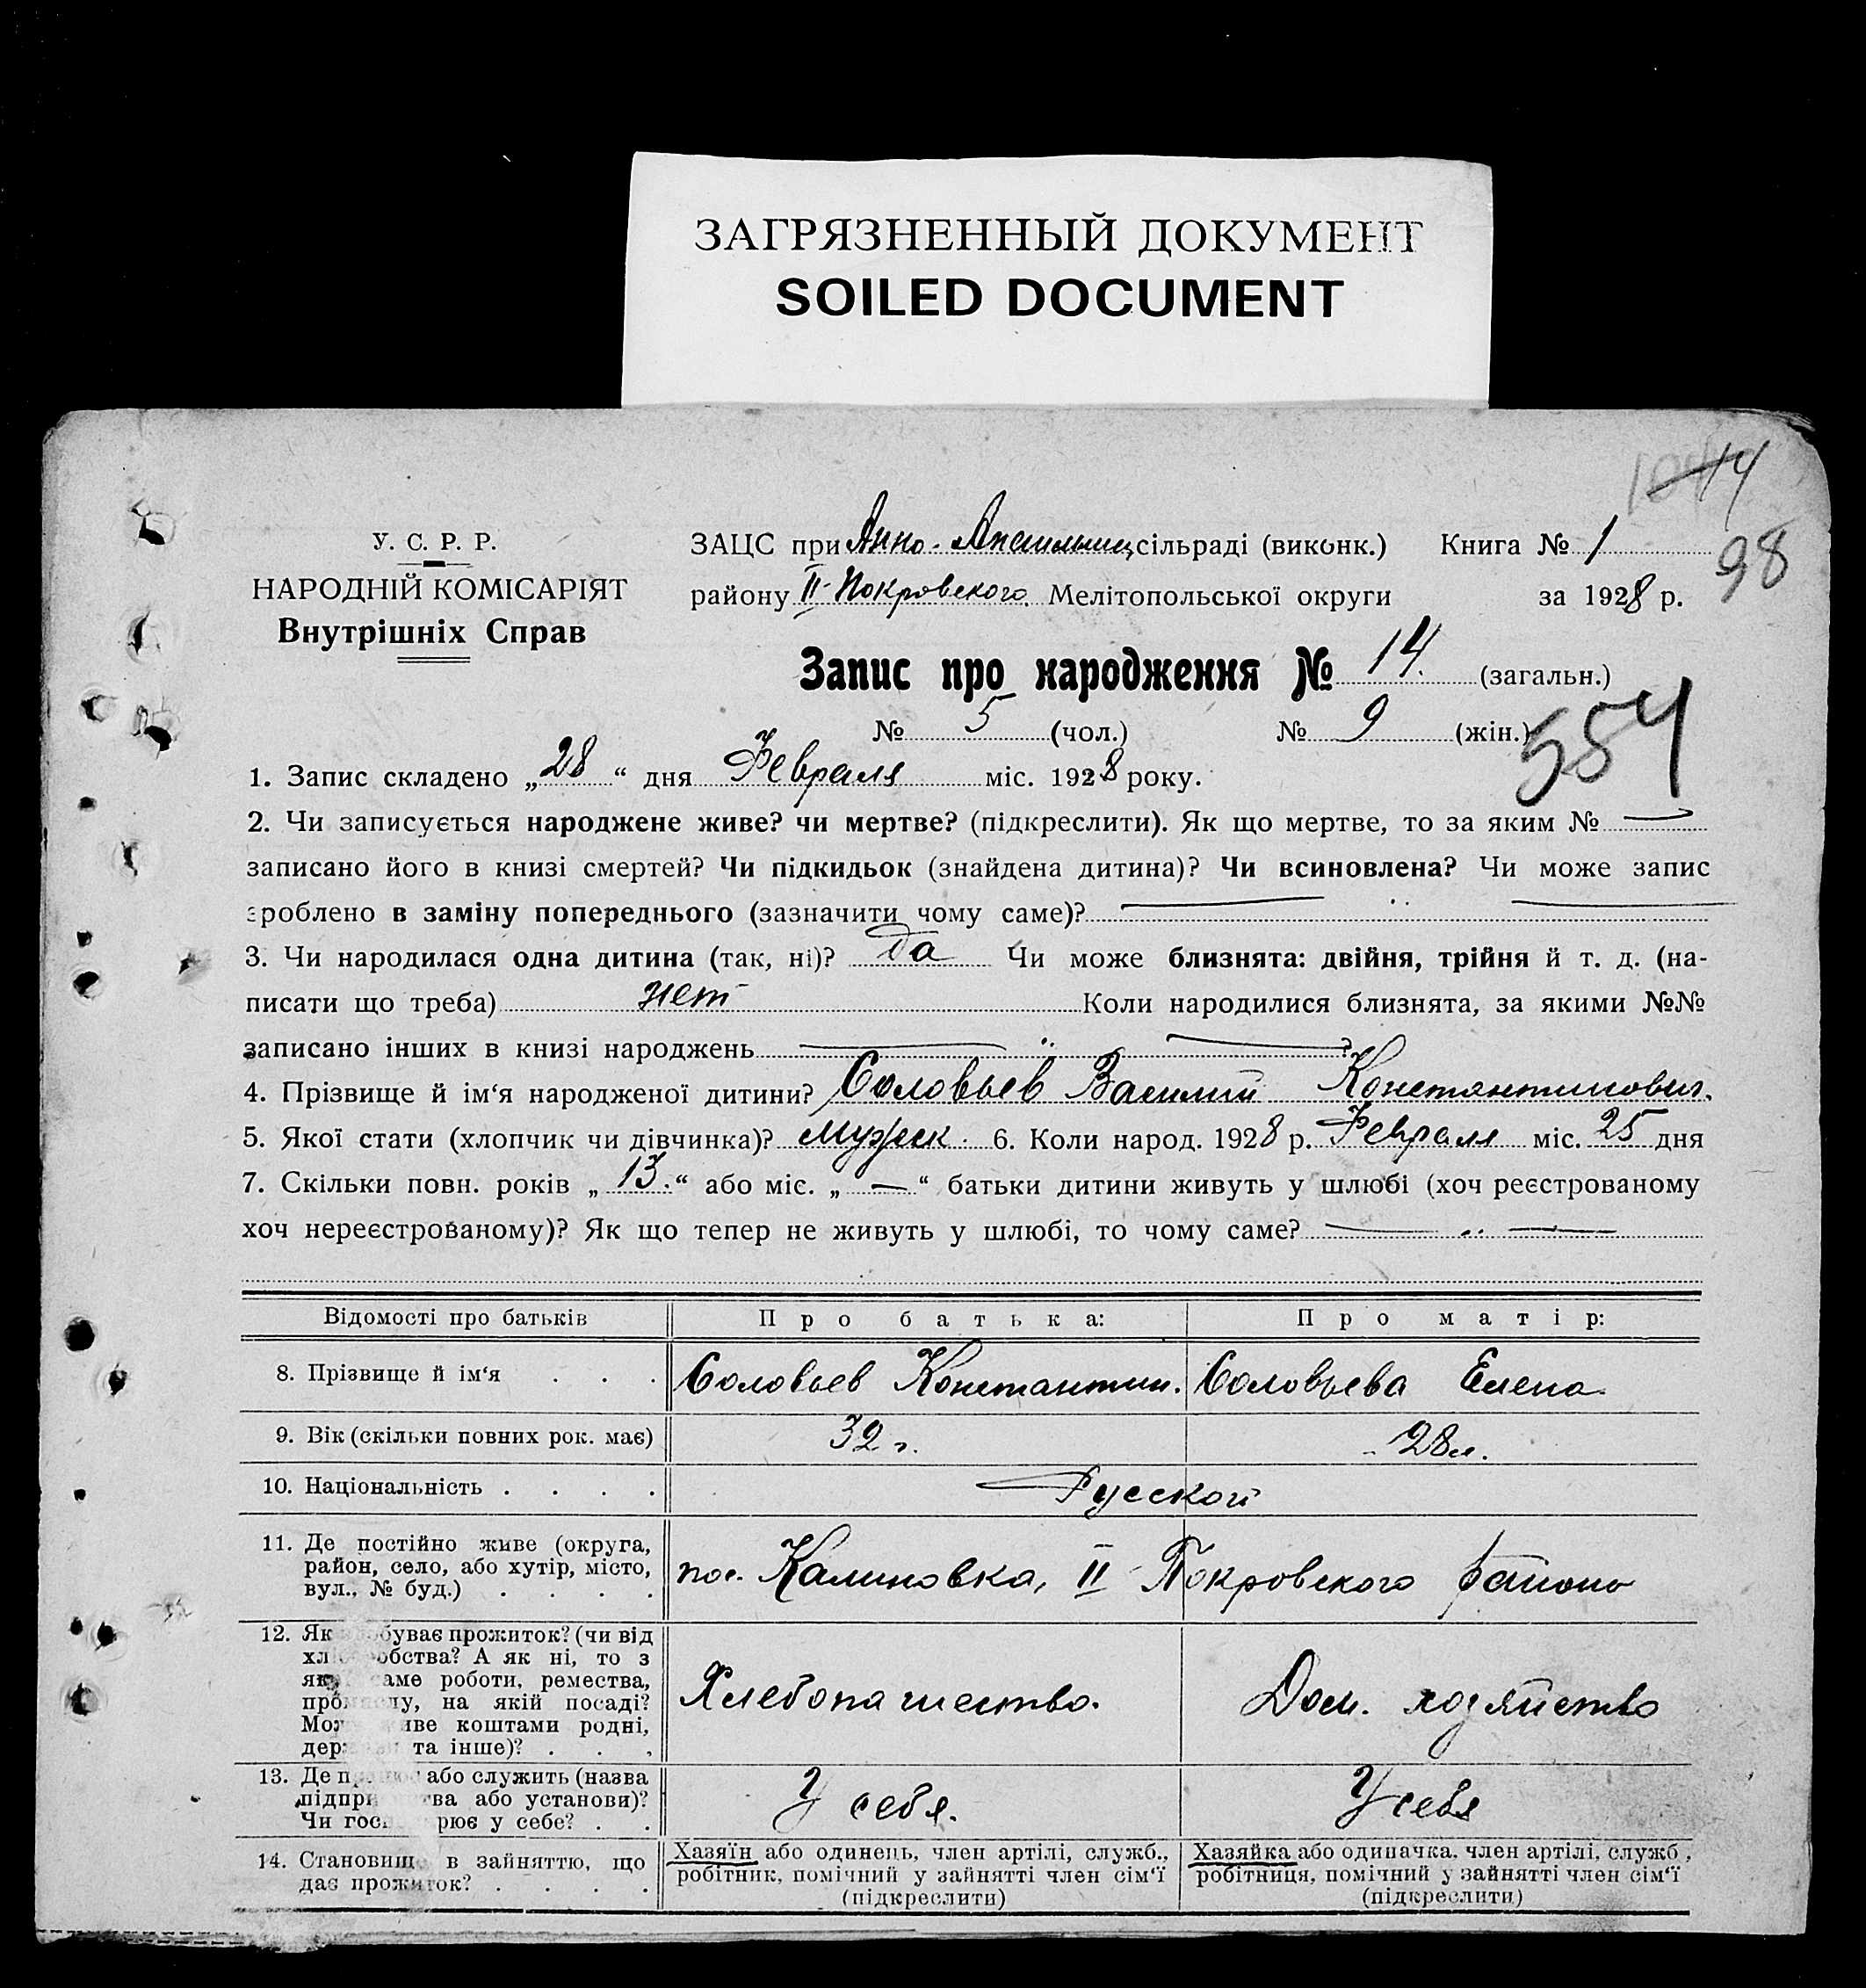 ЗАГРЯЗНЕННЫЙ ДОКУМЕНТ
SOILED DOCUMENT
14
98
У. С. Р. Р.
НАРОДНІЙ КОМІСАРІЯТ
Внутрішніх Справ
ЗАЦС при Анно- сільраді (виконк.) Книга № 1
району II-Покровского Мелітопольської округи за 1928 р.
Запис про народження № 14. (загальн.)
№ 5 (чол.) № 9 (жін.)
554
1. Запис складено „28“ дня Февраля міс. 1928 року.
2. Чи записується народжене живе? чи мертве? (підкреслити). Як що мертве, то за яким № —
записано його в книзі смертей? Чи підкидьок (знайдена дитина)? Чи всиновлена? Чи може запис
зроблено в заміну попереднього (зазначити чому саме)? — „ —
3. Чи народилася одна дитина (так, ні)? да Чи може близнята: двійня, трійня й т. д. (на-
писати що треба) нет Коли народилися близнята, за якими №№
записано інших в книзі народжень — „ — ?
4. Прізвище й ім‘я народженої дитини? Соловьев Василий Константинович.
5. Якої стати (хлопчик чи дівчинка)? мужск. 6. Коли народ. 1928 р. Февраля міс. 25 дня
7. Скільки повн. років „13.“ або міс. „—“ батьки дитини живуть у шлюбі (хоч реєстрованому
хоч нереєстрованому)? Як що тепер не живуть у шлюбі, то чому саме? — „ —
Відомості про батьків Про батька: Про матір:
8. Прізвище й ім‘я . . . Соловьев Константин. Соловьева Елена.
9. Вік (скільки повних рок. має) 32 г. 28 л.
10. Національність . . . . Русской
11. Де постійно живе (округа,
район, село, або хутір, місто,
вул., № буд.) . . . .
пос. Калиновка, II Покровского района
12. Як буває прожиток? (чи від
обства? А як ні, то з
саме роботи, ремества,
промислу, на якій посаді?
Може живе коштами родні,
держави та інше)? . . .
Хлебопашество. Дом. хозяйство
13. Де працює або служить (назва
підприємства або установи)?
Чи господарює у себе? . .
У себя. У себя
14. Становище в зайняттю, що
дає прожиток? . . . .
Хазяїн або одинець, член артілі, служб.,
робітник, помічний у зайнятті член сім‘ї
(підкреслити)
Хазяйка або одиначка. член артілі, служб.,
робітниця, помічний у зайнятті член сім‘ї
(підкреслити)